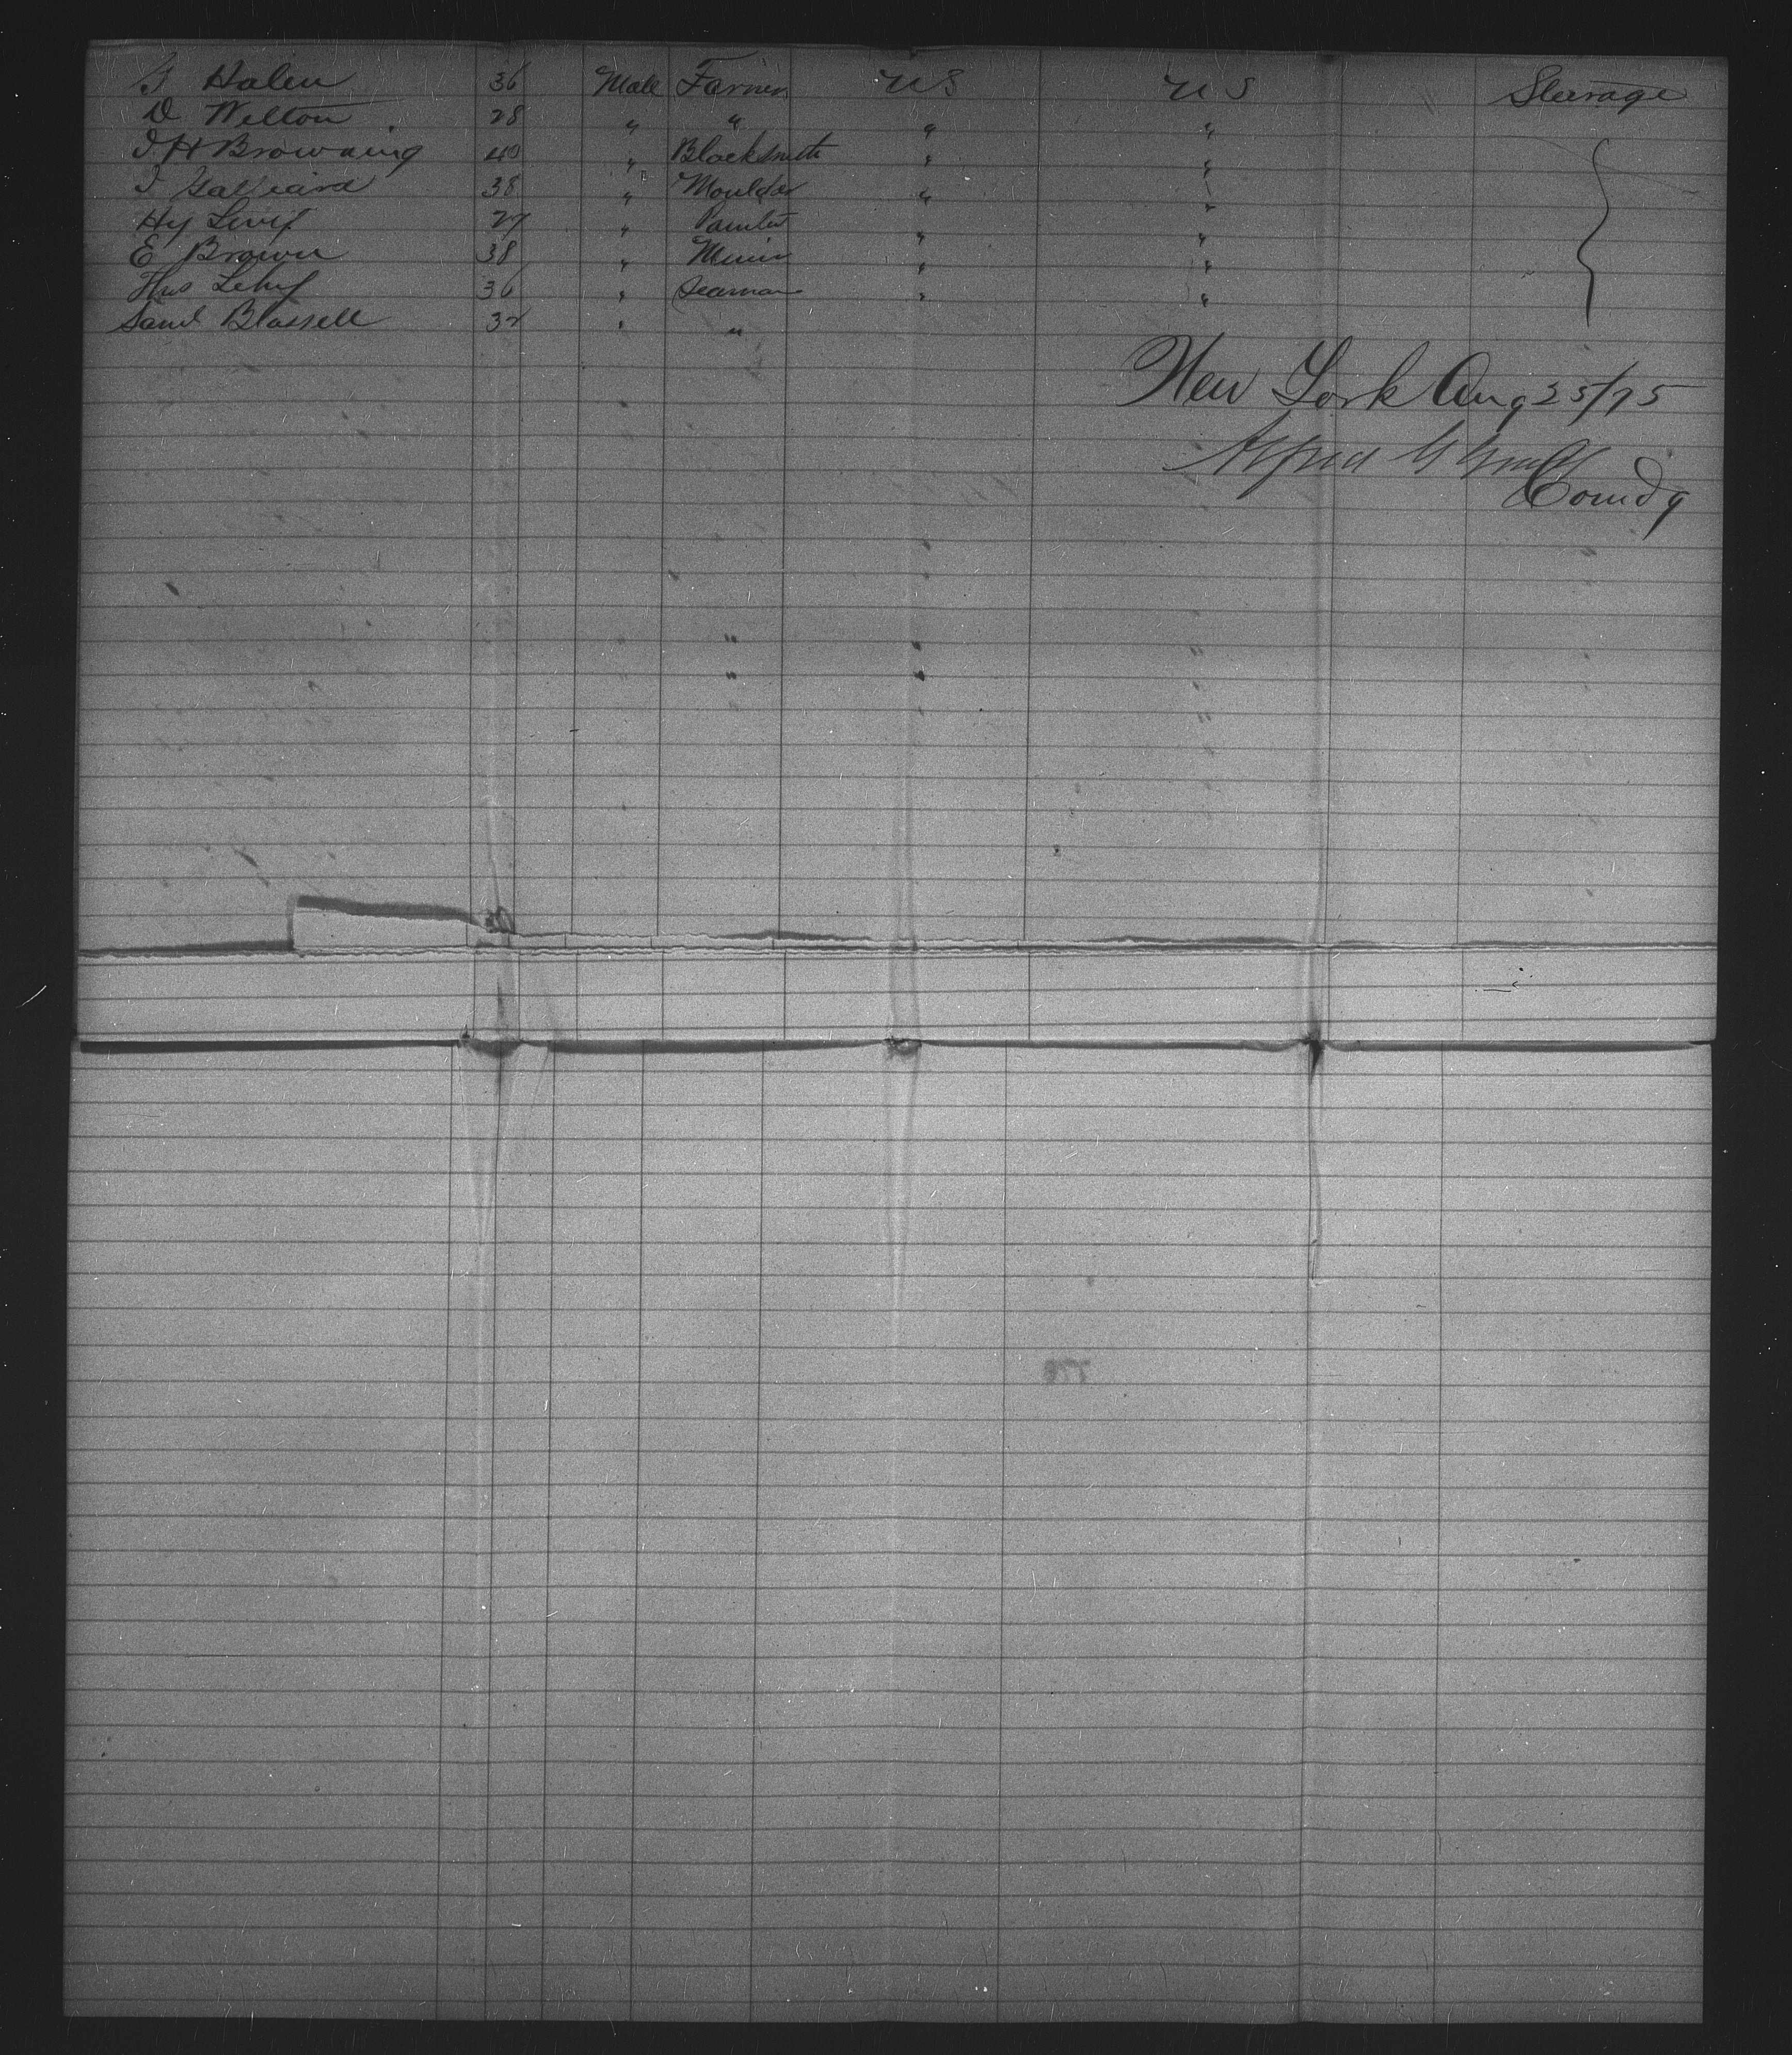 Halen 36 Male Farmer US US Steerage
D Welton 28 " " " "
J H Browning 40 " Blacksmith " "
38 " Moulder " "
Hy 27 " Painter " "
E Brown 38 " Miner " "
Thos 36 " Seaman " "
Saml Blassell 32 " "
New York Aug 25/75
Alfred G
Comdg